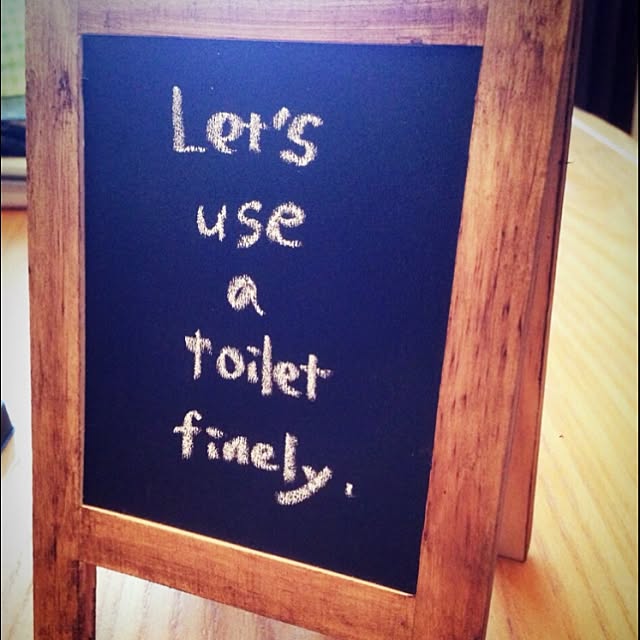 Let's
use
a
toilet
finely.